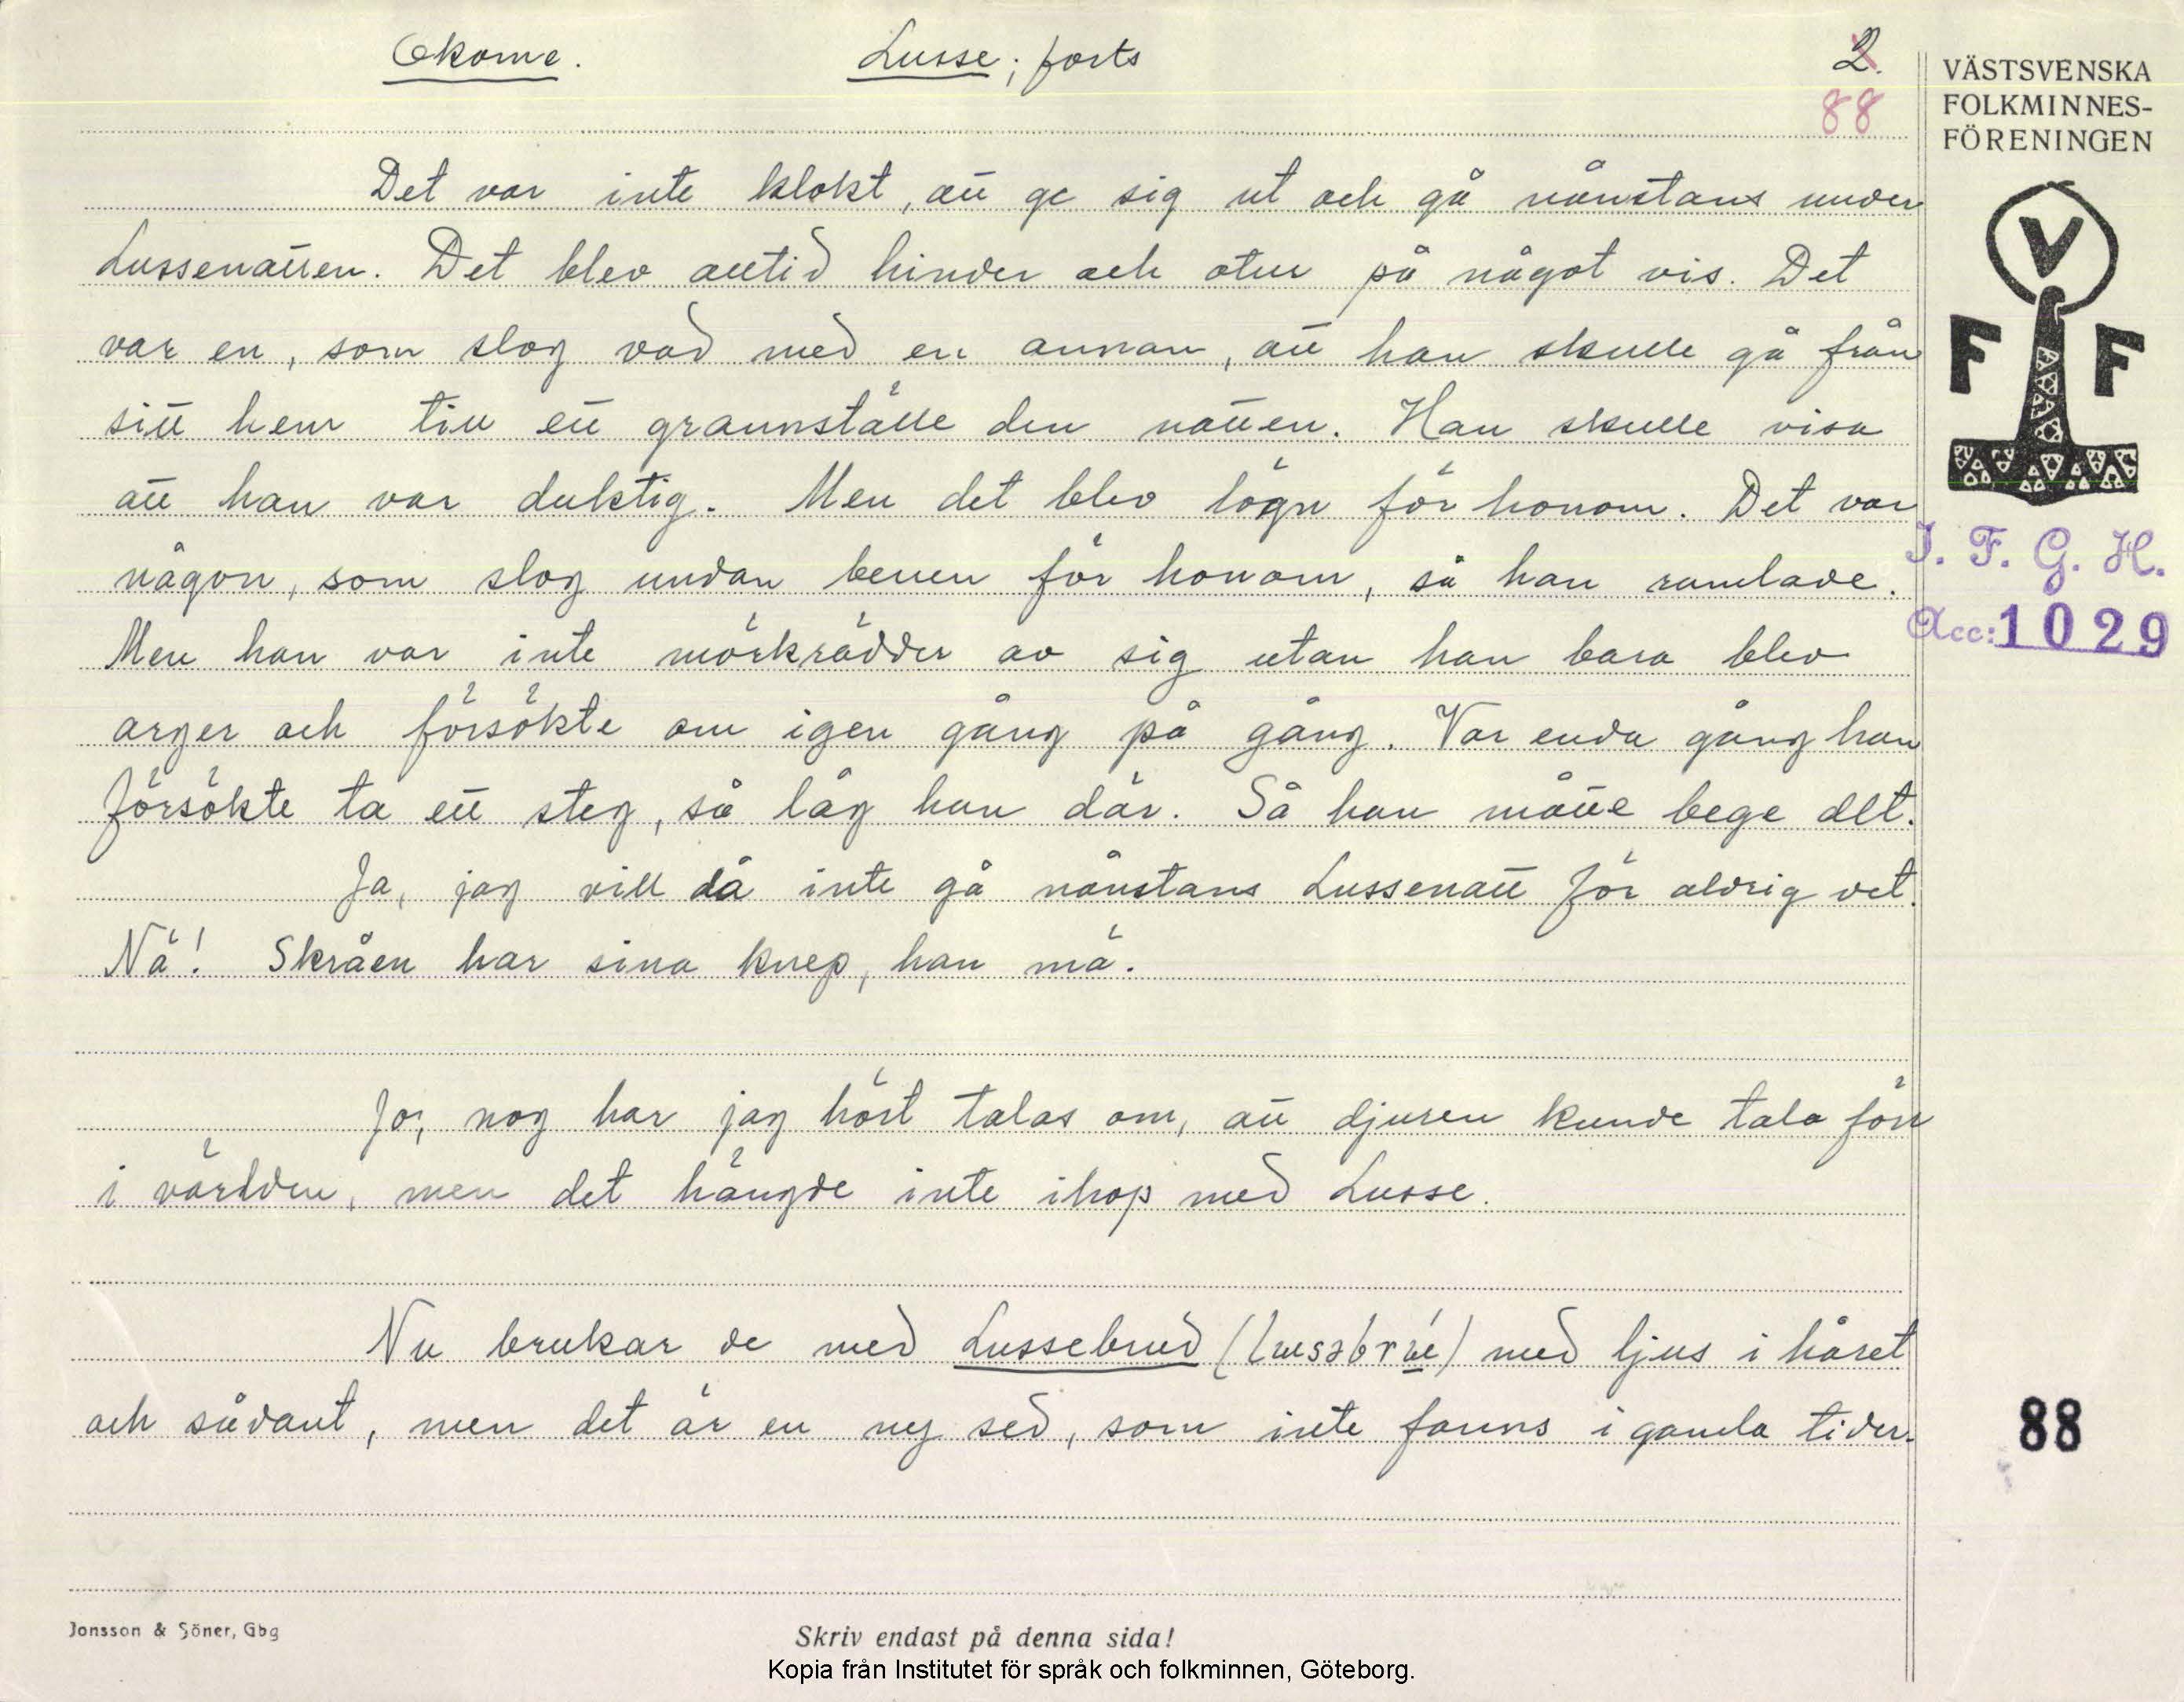 Okome. Lusse; forts 2.
88
VÄSTSVENSKA
FOLKMINNES-
FÖRENINGEN
Det var inte klokt, att ge sig ut och gå nånstans under
Lussenatten. Det blev alltid hinder och otur på något vis. Det
var en, som slog vad med en annan, att han skulle gå från
sitt hem till ett grannställe den natten. Han skulle visa
att han var duktig. Men det blev lögn för honom. Det var
någon, som slog undan benen för honom, så han ramlade.
Men han var inte mörkrädder av sig utan han bara blev
arger och försökte om igen gång på gång. Var enda gång han
försökte ta ett steg, så låg han där. Så han måtte bege det.
Ja, jag vill då inte gå nånstans Lussenatt för aldrig det.
Nä! Skråen har sina knep, han mä.
Jo, nog har jag hört talas om, att djuren kunde tala förr
i världen, men det hängde inte ihop med Lusse.
Nu brukar de med Lussebrud () med ljus i håret
och sådant, men det är en ny sed, som inte fanns i gamla tider.
V
F F
I. F. G. H.
Acc: 1029
88
Jonsson & Söner, Gbg
Skriv endast på denna sida!
Kopia från Institutet för språk och folkminnen, Göteborg.